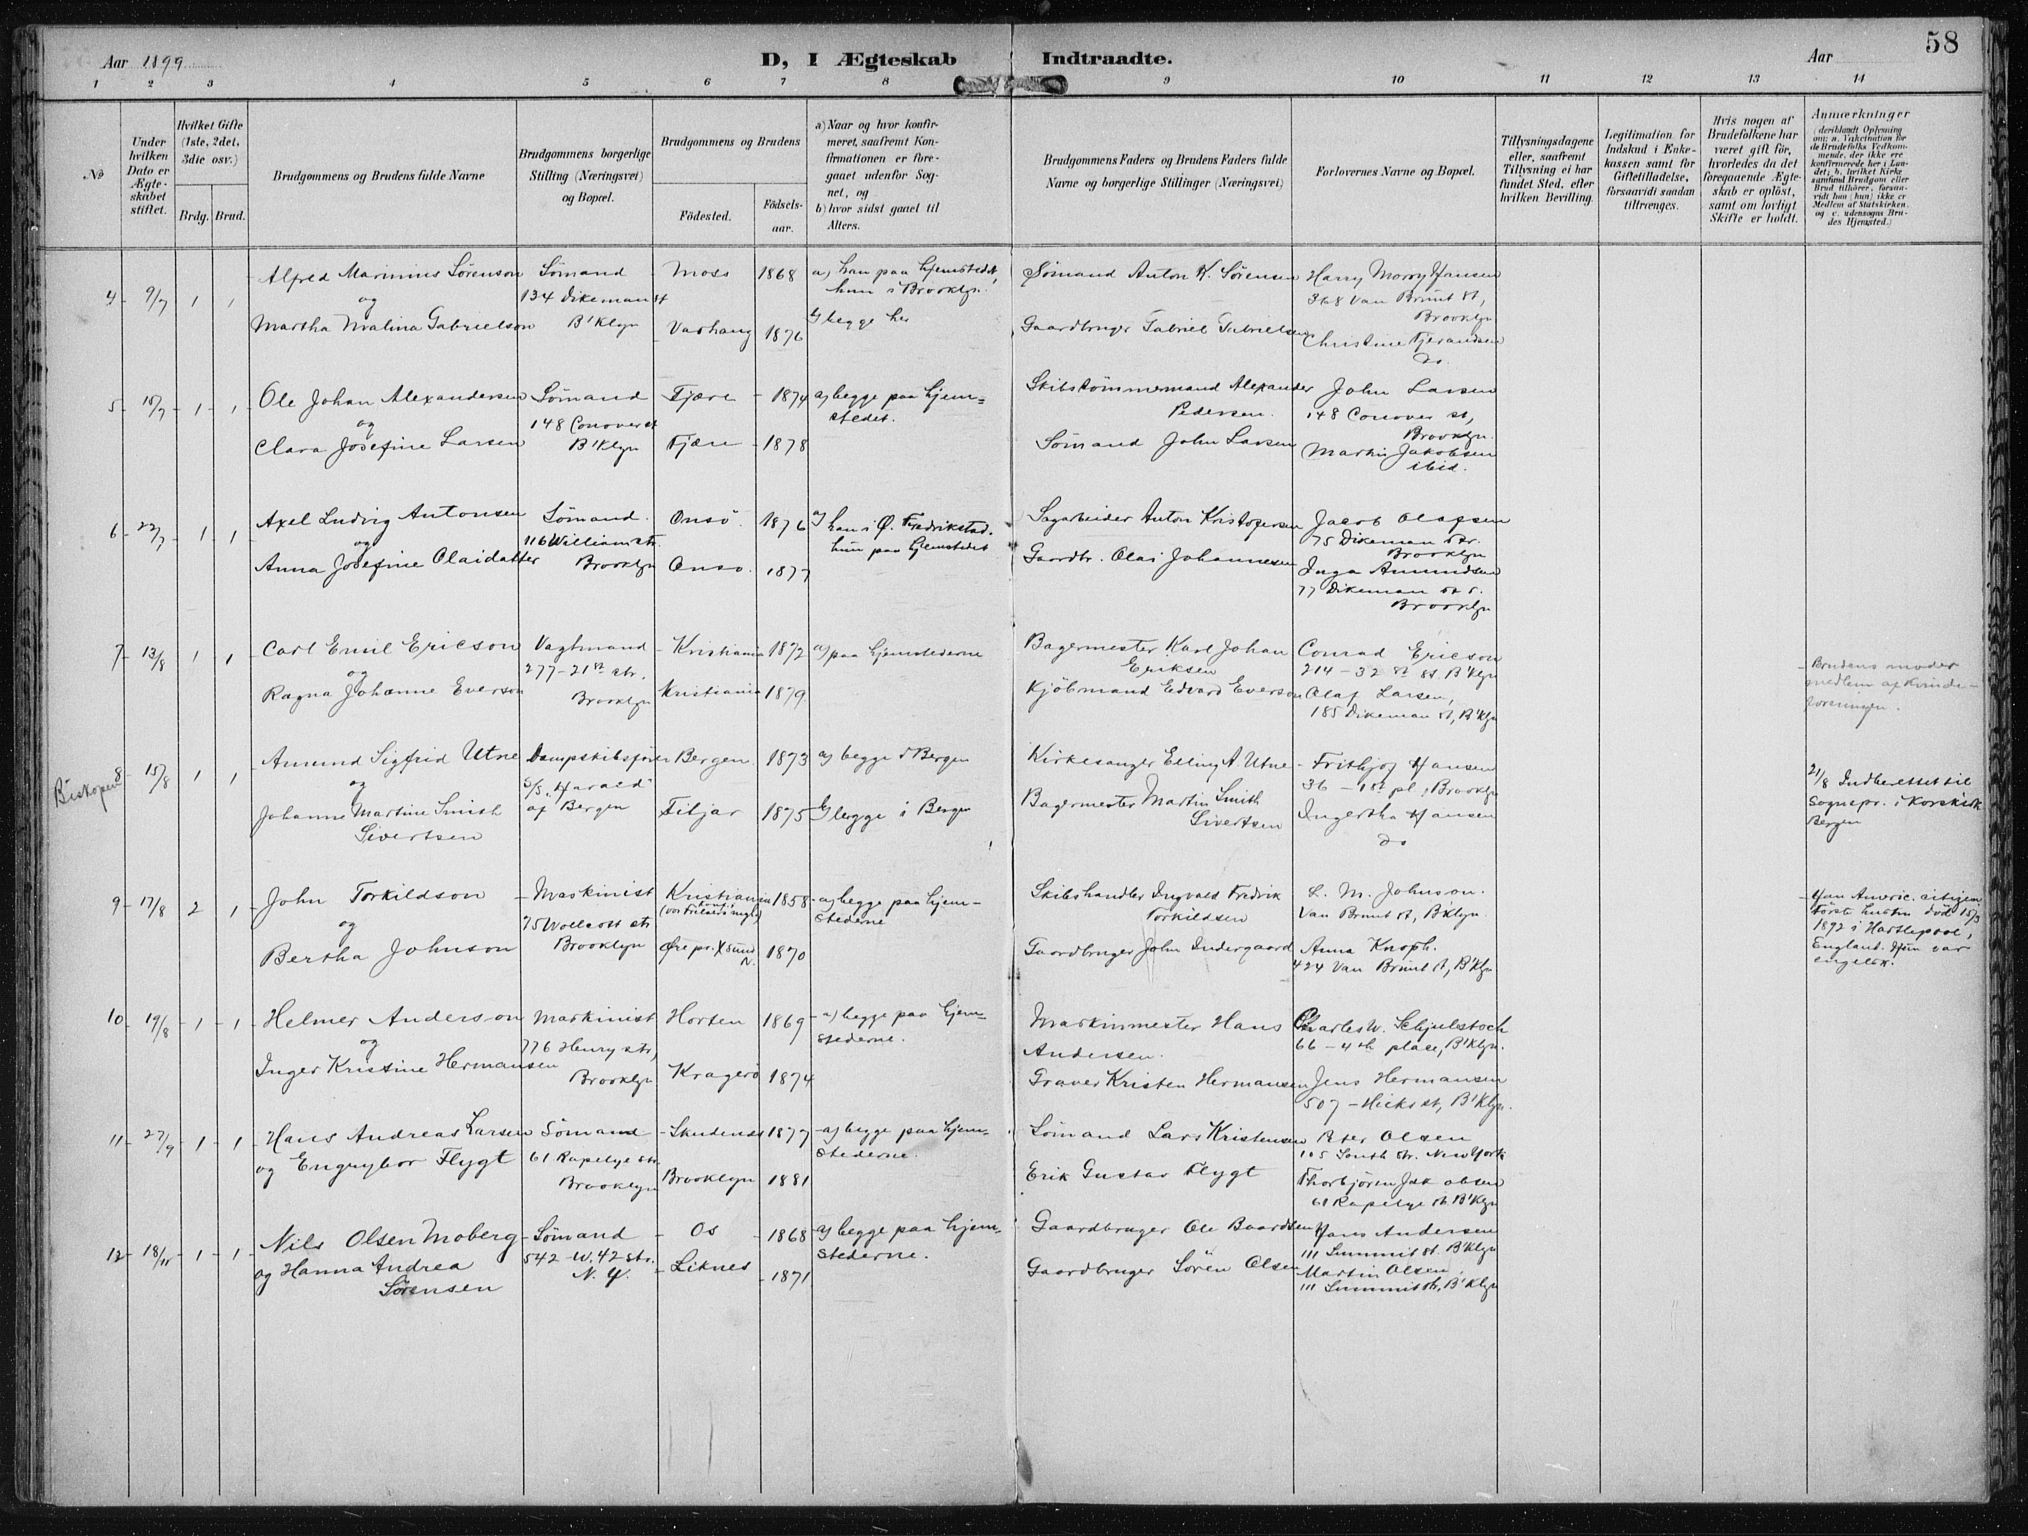 58
Aar 1899
D, I Ægteskab Indtraadte.
Aar
1 2 3 4 5 6 7 8 9 10 11 12 13 14
No
Under hvilken Dato er Ægteskabet stiftet.
Hvilket Gifte (1ste, 2det, 3die osv.)
Brdg. Brud.
Brudgommens og Brudens fulde Navne
Brudgommens borgerlige Stilling (Næringsvei) og Bopæl.
Brudgommens og Brudens
Födested.
Födsels-aar.
a) Naar og hvor konfirmeret, saafremt Konfirmationen er foregaaet udenfor Sognet, og
b) hvor sidst gaaet til Alters.
Brudgommens Faders og Brudens Faders fulde Navne og borgerlige Stillinger (Næringsvei)
Forlovernes Navne og Bopæl.
Tillysningsdagene eller, saafremt Tillysning ei har fundet Sted, efter hvilken Bevilling.
Legitimation for Indskud i Enkekassen samt for Giftetilladelse, forsaavidt saadan tiltrænges.
Hvis nogen af Brudefolkene har været gift för, hvorledes da det foregaaende Ægteskab er oplöst, samt om lovligt Skifte er holdt.
Anmærkninger
(deriblandt Oplysning om: a. Vakcination for de Brudefolks Vedkommende, der ikke ere konfirmerede her i Landet; b. hvilket Kirkesamfund Brudgom eller Brud tilhörer, forsaavidt han (hun) ikke er Medlem af Statskirken, og c. udensogns Brudes Hjemsted.)
4 9/7 1 1
Alfred Marinius Sørenson
og
Martha Malina Gabrielson
Sømand
134 Dikeman st
B'klyn
Moss 1868
Varhaug 1876
a) han paa hjemstedet,
hun i Brooklyn.
b) begge her
Sømand Anton K. Sørensen
Gaardbruger Gabriel Gabrielsen
Harry Morry Hansen
368 Van Brunt st,
Brooklyn
Christine Tjerandsen
do.
5 15/7 1 1
Ole Johan Alexandersen
og
Clara Josefine Larsen
Sømand
148 Conover st
B'klyn
Fjære 1874
Fjære 1878
a) begge paa hjem=
stedet.
Skibstømmermand Alexander
Pedersen.
Sømand John Larsen
John Larsen
148 Conover st,
Brooklyn.
Martin Jakobsen
ibid.
6 22/7 1 1
Axel Ludvig Antonsen
og
Anna Josefine Olaidatter
Sømand.
116 William str.
Brooklyn
Onsö. 1876
Onsö. 1877
a) han i Ø. Fredrikstad.
hun paa hjemstedet
Sagarbeider Anton Kristofersen
Gaardbr. Olai Johannesen
Jacob Olafsen
75 Dikeman str.
Brooklyn
Inga Amundsen
77 Dikeman str.
Brooklyn
7 13/8 1 1
Carl Emil Ericson
og
Ragna Johanne Everson
Vagtmand
277-21st str.
Brooklyn
Kristiania 1872
Kristiania 1879
a) paa hjemstederne
Bagermester Karl Johan
Eriksen
Kjöbmand Edvard Everson
Conrad Ericson
214-32st st. B'klyn
Olaf Larsen,
185 Dikeman st, B'klyn
Brudens moder
medlem af Kvinde-
foreningen.
Biskopen
8 15/8 1 1
Amund Sigfrid Utne
og
Johanne Martine Smith
Sivertsen
Dampskibsfører
S/S. "Harald"
af Bergen
Bergen. 1873
Fitjar 1875
a) begge i Bergen
b) begge i Bergen
Kirkesanger Elling A Utne
Bagermester Martin Smith
Sivertsen
Frithjof Hansen
36-1st pl, Brooklyn
Ingertha Hansen
do
21/8 Indberettet til
Sognepr. i Korskirk
Bergen
9 17/8 2 1
John Torkildson
og
Bertha Johnson
Maskinist
75 Wolcott str
Brooklyn
Kristiania 1858
Øre pr. Xsund N. 1870
a) begge paa hjem-
stederne
Skibshandler Ingvald Fredrik
Torkildsen
Gaardbruger John Indergaard
L. M. Johnson.
Van Brunt st, B'klyn.
Anna Knoph.
424 Van Brunt st, B'klyn.
Han Americ. citizen
Første hustru död 15/3
1892 i Hartlepool,
England. Hun var
engelsk.
10 19/8 1 1
Helmer Anderson
og
Inger Kristine Hermansen
Maskinist
776 Henry str,
Brooklyn
Horten 1869
Kragerö 1874
a) begge paa hjem=
stederne.
Maskinmester Hans
Andersen.
Graver Kristen Hermansen
Charles W. Schjulstoch
66-4th place, B'klyn.
Jens Hermansen
507-Hicks st, B'klyn.
11 27/9 1 1
Hans Andreas Larsen
og Engeybor Flygt
Sømand
61 Rapelye str.
Brooklyn
Skudenes 1877
Brooklyn 1881
a) begge paa hjem-
stederne.
Sømand Lars Kristensen
Erik Gustav Flygt
Peter Olsen
105 South str. New York
Thorbjören Jakobsen
61 Rapelye st. B'klyn
12 18/11 1 1
Nils Olsen Moberg
og Hanna Andrea
Sørensen
Sømand
542-W. 42 str.
N. Y.
Os 1868
Liknes 1871
a) begge paa hjem-
stederne.
Gaardbruger Ole Baardsen
Gaardbruger Sören Olsen
Hans Andersen
111 Summit st. B'klyn
Martin Olsen,
111 Summit str, B'klyn